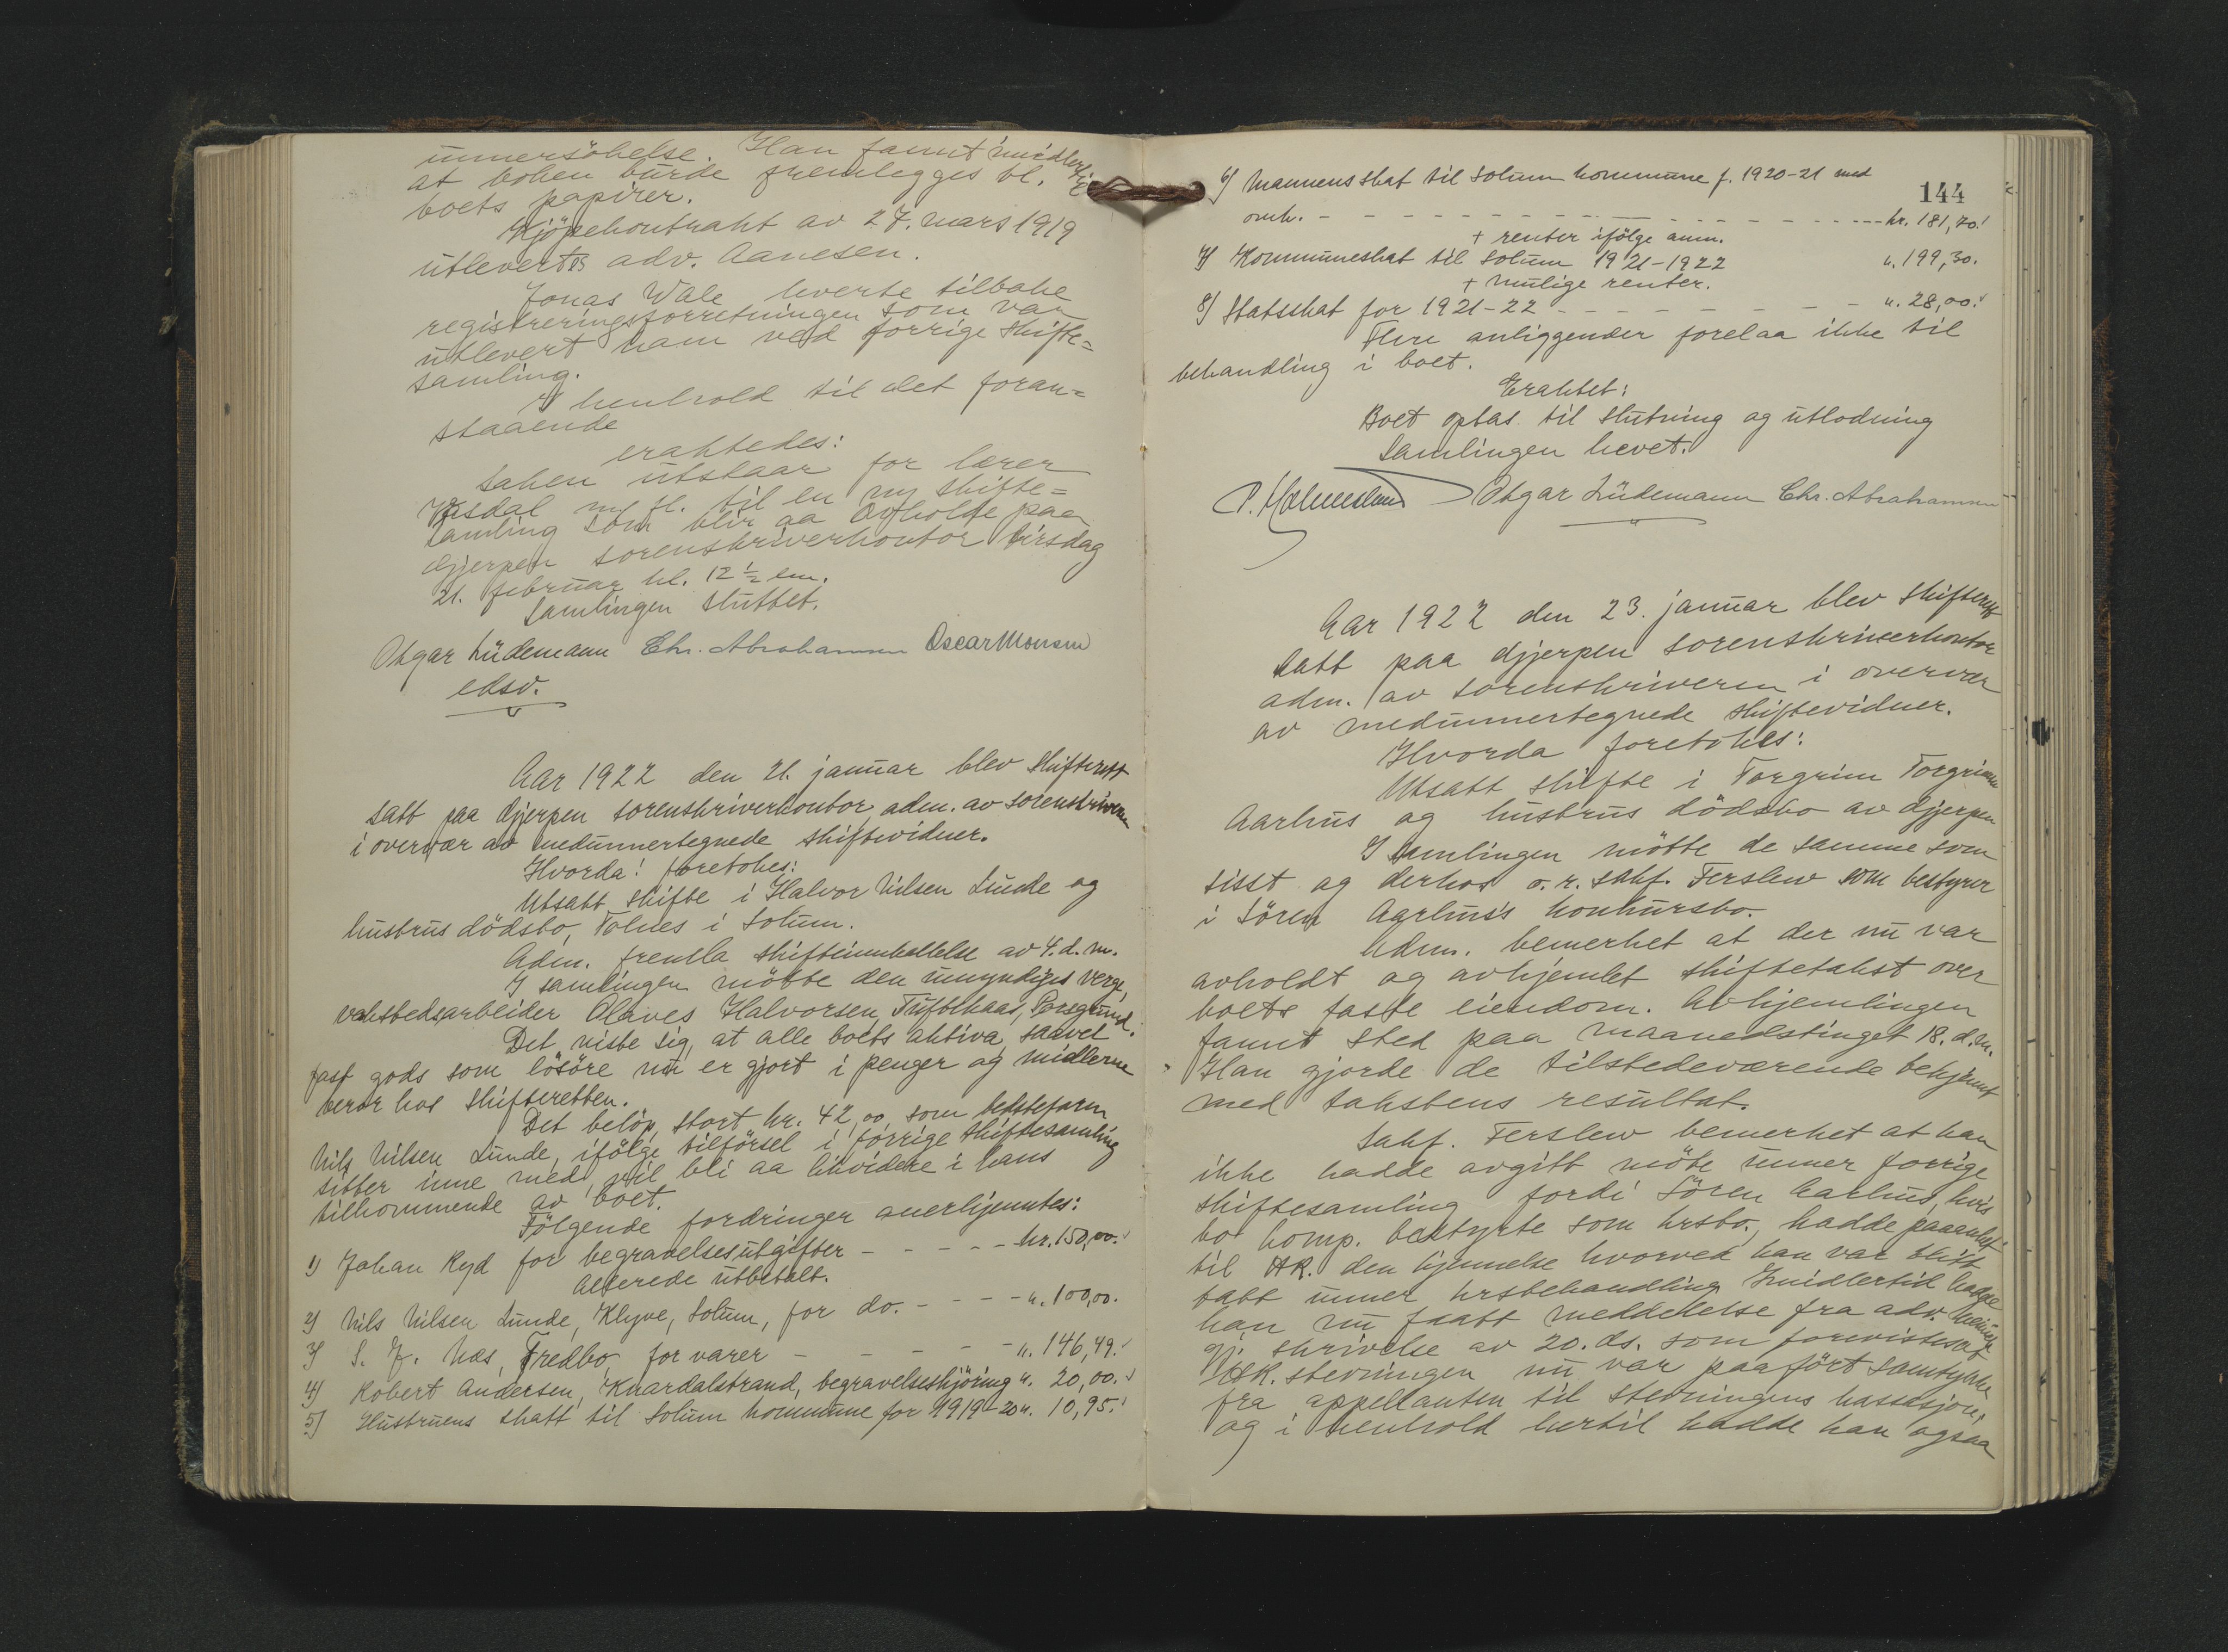 unnersökelse. Han fannt imidlertid
at boken burde fremlegges bl.
boets papirer.
Kjöpekontrakt av 27. mars 1919
utlevertes adv. Aanesen.
Jonas Wale leverte tilbake
registreringsforretningen som var
utlevert ham ved forrige skifte=
samling.
I henhold til det foran=
staaende
eraktedes:
Saken utstaar for lærer
Vasdal m. fl. til en ny skifte=
samling som blir aa avholde paa
Gjerpen sorenskriverkontor tirsdag
21. februar kl. 12 ½ em.
Samlingen sluttet.
Otgar Lüdemann Chr. Abrahamsen Oscar Monsen
eksv.
Aar 1922 den 21. januar blev skifterett
satt paa Gjerpen sorenskriverkontor adm. av sorenskriveren
i overvær av medunnertegnede skiftevidner.
Hvorda! foretokes:
Utsatt skifte i Halvor Nilsen Lunde og
hustrus dödsbo, Tolnes i Solum.
Adm. fremla skifteinnkallelse av 4. d. m.
I samlingen mötte den umyndiges verge,
verkstedsarbeider Olaves Halvorsen, Tuftekaas, Porsgrund.
Det viste sig, at alle boets aktiva, saavel
fast gods som lösöre nu er gjort i penger og midlerne
beror hos skifteretten.
Det belöp, stort kr. 42,00, som bedstefaren
Nils Nilsen Lunde, ifölge tilförsel i forrige skiftesamling
sitter inne med, vil bli aa likvidere i hans
tilkommende av boet.
Fölgende fordringer anerkjenntes:
1) Johan Ryd for begravelsesutgifter - - - - - kr. 150,00.
Allerede utbetalt.
2) Nils Nilsen Lunde, Klyve, Solum, for do. - - - - „. 100,00.
3) S. J. Næs, Fredbo, for varer - - - - - „. 146,49.
4) Robert Andersen, Knardalstrand, begravelseskjöring „. 20,00.
5) Hustruens skatt til Solum kommune for 1919-20 „. 10,95.
144
6) Mannens skat til Solum kommune f. 1920-21 med
omk. - - - - - - - - - - - - - - - kr. 181,70.
+ renter ifölge anm.
7) Kommuneskat til Solum 1921-1922 „. 199,30.
+ mulige renter.
8) Statsskat for 1921-22 - - - - - - - - „. 28,00.
Flere anliggender forelaa ikke til
behandling i boet.
Eraktet:
Boet optas til slutning og utlodning
Samlingen hevet.
P. Holmesland Otgar Lüdemann Chr. Abrahamsen
Aar 1922 den 23. januar blev skifterett
satt paa Gjerpen sorenskriverkontor
adm. av sorenskriveren i overvær
av medunnertegnede skiftevidner.
Hvorda foretokes:
Utsatt skifte i Torgrim Torgrimsen
Aarhus og hustrus dödsbo av Gjerpen
I samlingen mötte de samme som
sisst og derhos o. r. sakf. Ferslew som bestyrer
i Sören Aarhus's konkursbo.
Adm. bemerket at der nu var
avholdt og avhjemlet skiftetakst over
boets faste eiendom. Avhjemlingen
fannt sted paa maanedstinget 18. d. m.
Han gjorde de tilstedeværende bekjennt
med takstens resultat.
Sakf. Ferslew bemerket at han
ikke hadde avgitt möte unner forrige
skiftesamling fordi Sören Aarhus, hvis
bo komp. bestyrte som krsbo., hadde paaanket
til HR. den kjennelse hvorved han var blitt
tatt unner krsbehandling. Imidlertid hadde
han nu faatt meddelelse fra adv.
i skrivelse av 20. ds. som forevistes at
HR. stevningen nu var paafört samtykke
fra appellanten til stevningens kassasjon,
og i henhold hertil hadde han ogsaa